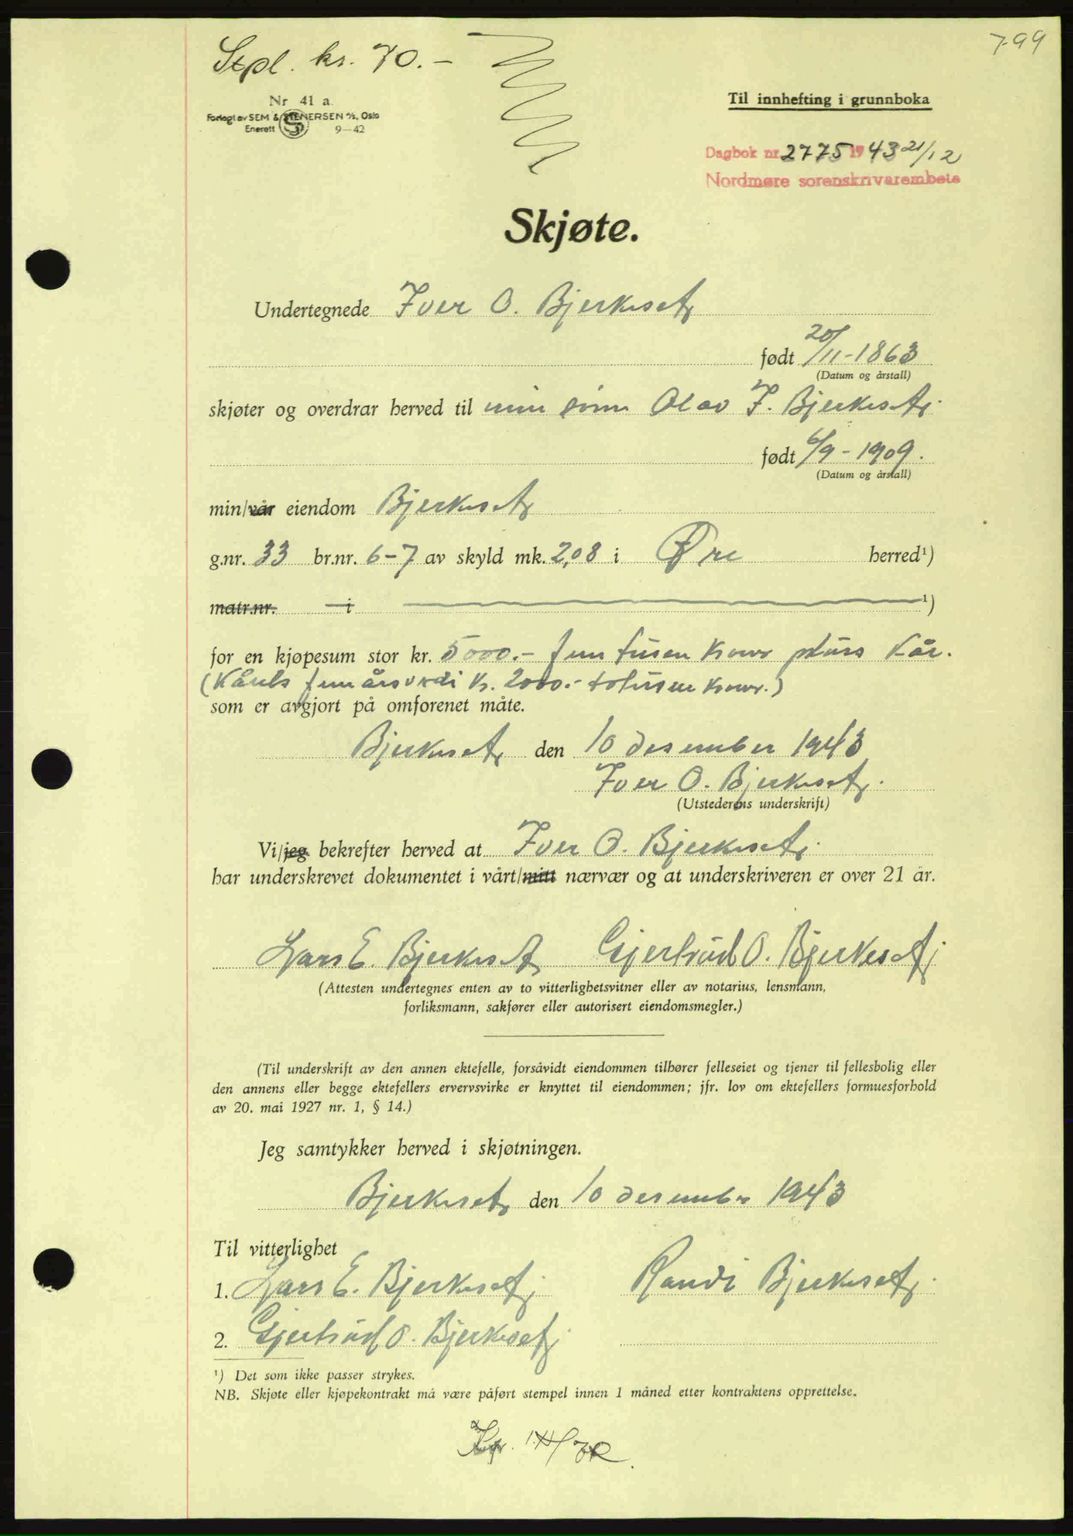 799
Stpl. kr. 70.-
Nr 41 a.
Forlagt av SEM & STENERSEN A/S, Oslo
Enerett 9-42
Til innhefting i grunnboka
Dagbok nr. 2775 1943 21/12
Nordmøre sorenskrivarembete
Skjøte.
Undertegnede Iver O. Bjerkeset,
født 20/11-1863
(Datum og årstall)
skjøter og overdrar herved til min sønn Olav I. Bjerkeset,
født 6/9-1909.
(Datum og årstall)
min/vår eiendom Bjerkeset,
g.nr. 33 br.nr. 6-7 av skyld mk. 2,08 i Øre herred¹)
matr.nr. i ¹)
for en kjøpesum stor kr. 5000.- fem tusen kroner pluss kår.
(Kårets femårsverdi kr. 2000.- totusen kroner.)
som er avgjort på omforenet måte.
Bjerkeset, den 10 desember 1943
Iver O. Bjerkeset.
(Utstederens underskrift)
Vi/jeg bekrefter herved at Iver O. Bjerkeset,
har underskrevet dokumentet i vårt/mitt nærvær og at underskriveren er over 21 år.
Lars E. Bjerkeset, Gjertrud O. Bjerkeset,
(Attesten undertegnes enten av to vitterlighetsvitner eller av notarius, lensmann,
forliksmann, sakfører eller autorisert eiendomsmegler.)
(Til underskrift av den annen ektefelle, forsåvidt eiendommen tilhører felleseiet og tjener til fellesbolig eller
den annens eller begge ektefellers ervervsvirke er knyttet til eiendommen; jfr. lov om ektefellers formuesforhold
av 20. mai 1927 nr. 1, § 14.)
Jeg samtykker herved i skjøtningen.
Bjerkeset, den 10 desember 1943
Til vitterlighet
1. Lars E. Bjerkeset, Randi Bjerkeset,
2. Gjertrud O. Bjerkeset,
¹) Det som ikke passer strykes.
NB. Skjøte eller kjøpekontrakt må være påført stempel innen 1 måned etter kontraktens opprettelse.